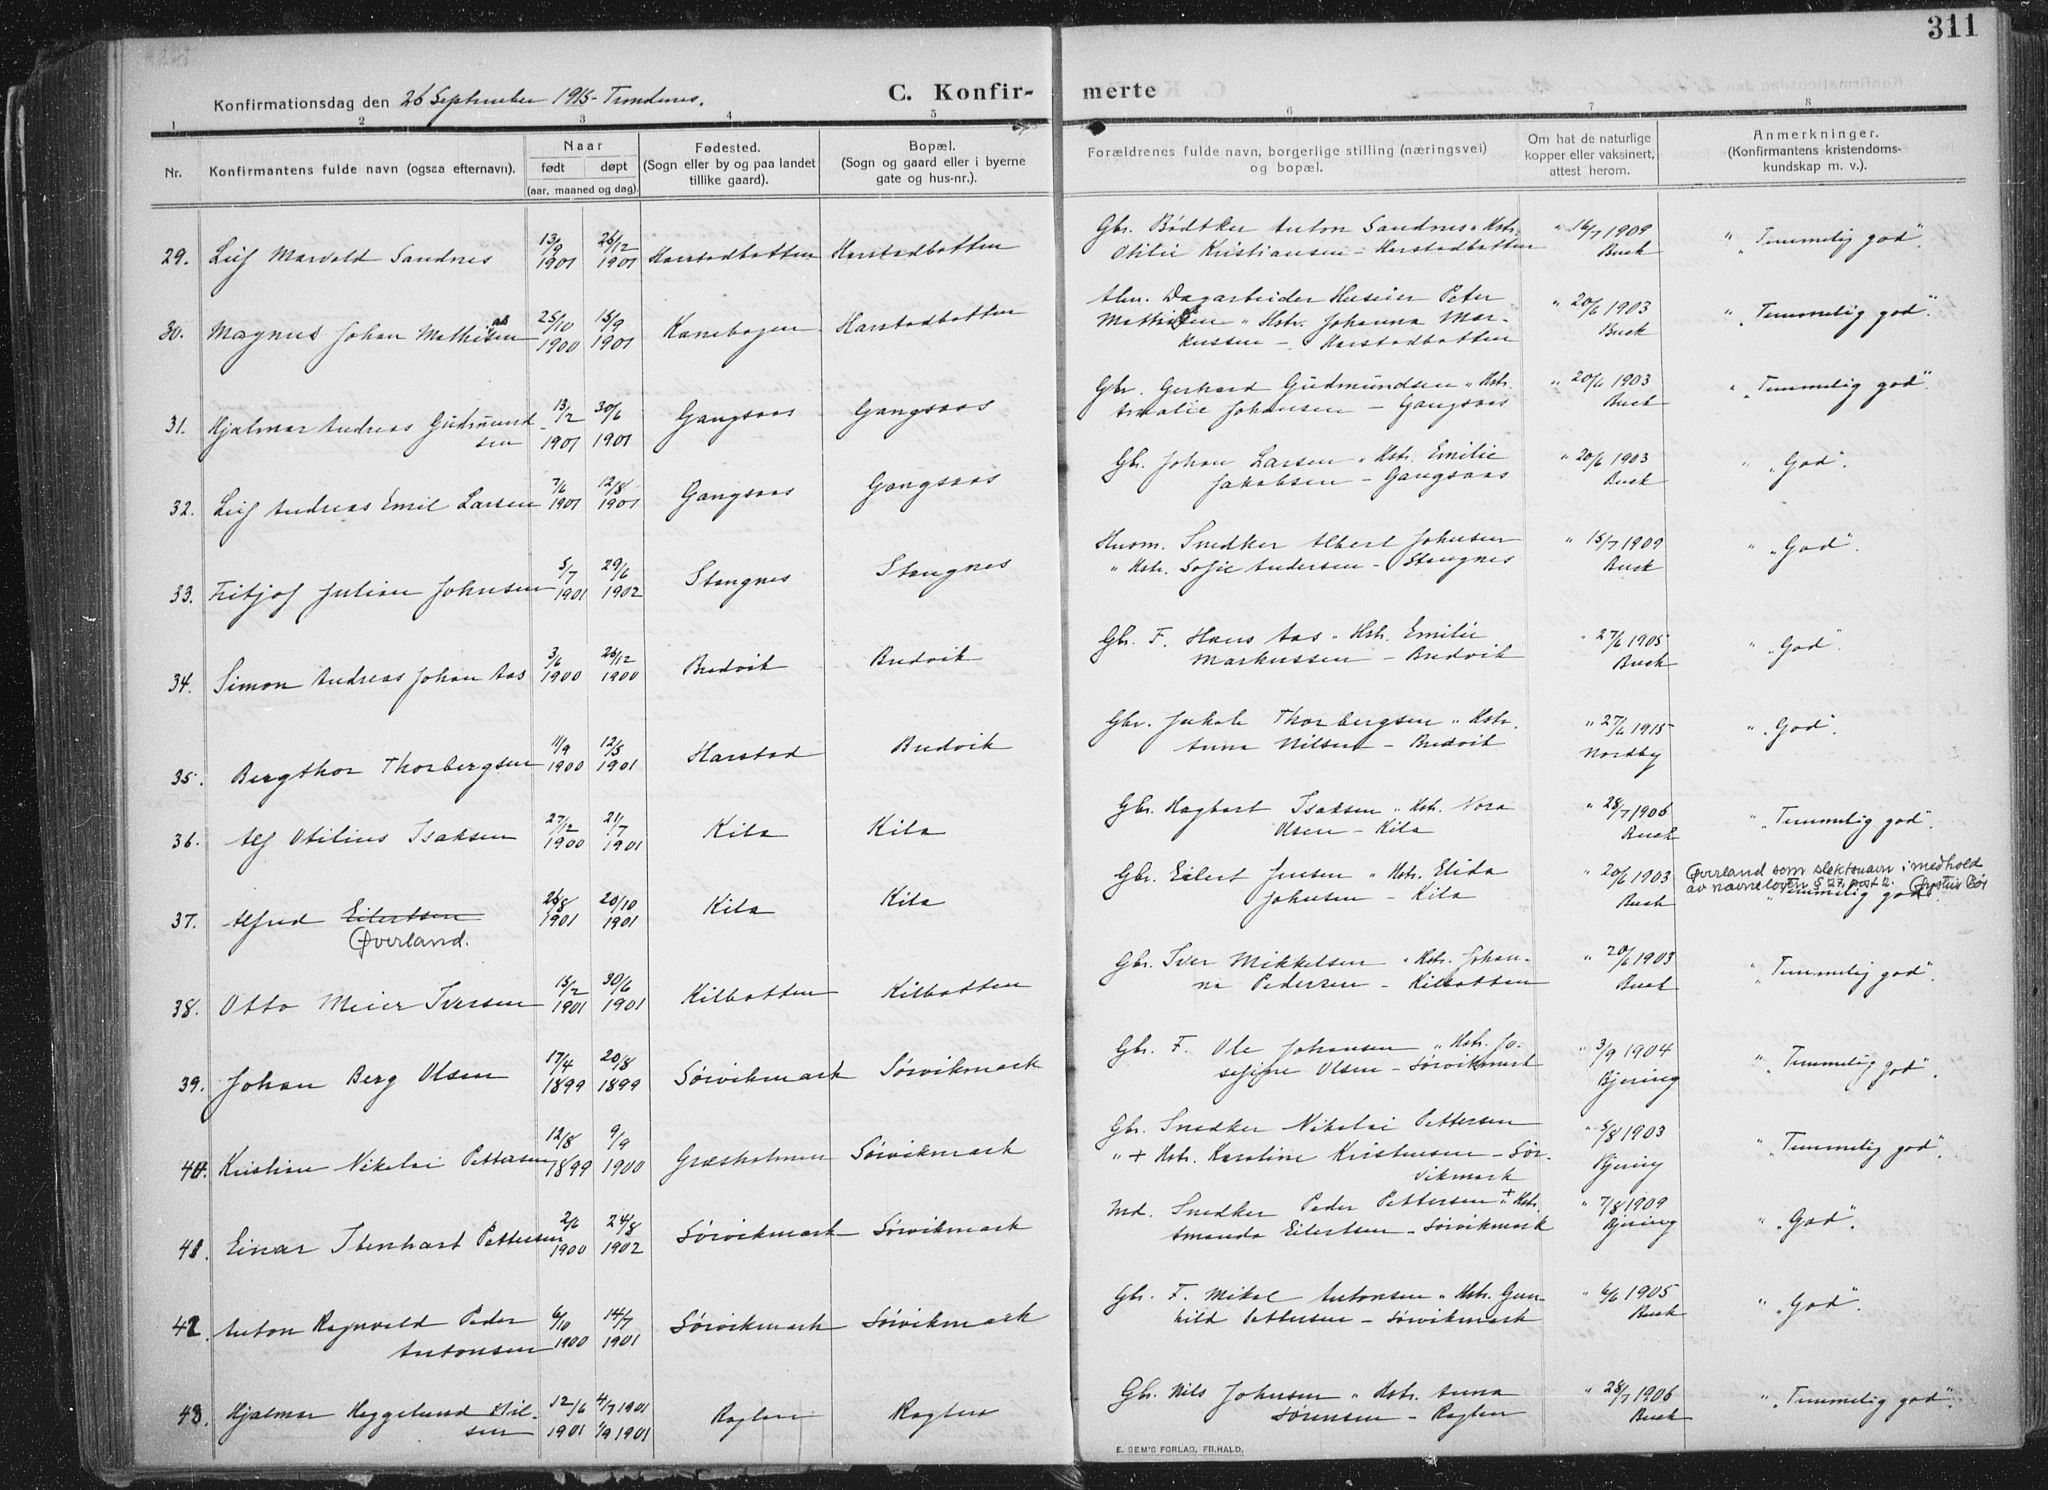 311
Konfirmationsdag den 26 September 1915 - Trondenes.
C. Konfir- merte
1 2 3 4 5 6 7 8
Nr.
Konfirmantens fulde navn (ogsaa efternavn).
Naar
født døpt
(aar, maaned og dag).
Fødested.
(Sogn eller by og paa landet
tillike gaard).
Bopæl.
(Sogn og gaard eller i byerne
gate og hus-nr.).
Forældrenes fulde navn, borgerlige stilling (næringsvei)
og bopæl.
Om hat de naturlige
kopper eller vaksinert,
attest herom.
Anmerkninger.
(Konfirmantens kristendoms-
kundskap m. v.).
29. Leif Marvold Sandnes 13/9 1901 26/12 1901 Harstadbotten Harstadbotten
Gbr. Bødtker Anton Sandnes " Hstr.
Otilie Kristiansen - Harstadbotten
" 16/7 1909
Busch
" "Temmelig god".
30. Magnus Johan Mathisen 25/10 1900 15/9 1901 Kanebogen Harstadbotten
Alm. Dagarbeider Huseier Peter
Mathisen " Hstr. Johanna Mar-
kussen - Harstadbotten
" 20/6 1903
Busch
" "Temmelig god".
31. Hjalmar Andreas Gudmund
sen 13/2 1901 30/6 1901 Gangsaas Gangsaas
Gbr. Gerhard Gudmundsen " Hstr.
Amalie Johansen - Gangsaas
" 20/6 1903
Busch
" "Temmelig god".
32. Leif Andreas Emil Larsen 7/6 1901 12/8 1901 Gangsaas Gangsaas
Gbr. Johan Larsen " Hstr. Emilie
Jakobsen - Gangsaas
" 20/6 1903
Busch
" "God".
33. Fritjof Julian Johnsen 5/7 1901 29/6 1902 Stangnes Stangnes
Husm. Snedker Albert Johnsen
" Hstr. Sofie Andersen - Stangnes
" 15/7 1909
Busch
" "God".
34. Simon Andreas Johan Aas 3/6 1900 26/12 1900 Bredvik Bredvik
Gbr. F. Hans Aas " Hstr. Emilie
Markussen - Bredvik
" 27/6 1905
Busch
" "God".
35. Bergthor Thorbergsen 11/9 1900 12/5 1901 Harstad Bredvik
Gbr. Jakob Thorbergsen " Hstr.
Anna Nilsen - Bredvik
" 27/6 1915
Nordby
" "God".
36. Alf Otilius Isaksen 27/12 1900 21/7 1901 Kila Kila
Gbr. Hagbart Isaksen " Hstr. Nora
Olsen - Kila
" 28/7 1906
Busch
" "Temmelig god".
37. Alfred Eilertsen
Øverland. 26/8 1901 20/10 1901 Kila Kila
Gbr. Eilert Jensen " Hstr. Elida
Johnsen - Kila
" 20/6 1903
Busch
Øverland som slektsnavn i medhold
av navneloven § 27, post 2.
"Temmelig god".
38. Otto Meier Iversen 15/2 1901 30/6 1901 Kilbotten Kilbotten
Gbr. Iver Mikkelsen " Hstr. Johan-
na Pedersen - Kilbotten
" 20/6 1903
Busch
" "Temmelig god".
39. Johan Berg Olsen 17/4 1899 20/8 1899 Sørvikmark Sørvikmark
Gbr. F. Ole Johansen " Hstr. Jo-
sefine Olsen - Sørvikmark
" 3/9 1904
Bjering
" "Temmelig god".
40. Kristian Nikolai Pettersen 12/8 1899 9/9 1900 Græsholmen Sørvikmark
Gbr. Snedker Nikolai Pettersen
" + Hstr. Karoline Kristensen - Sør-
vikmark
" 5/8 1903
Bjering
" "Temmelig god".
41. Einar Ibenhart Pettersen 2/6 1900 24/8 1902 Sørvikmark Sørvikmark
Md. Snedker Peder Pettersen " + Hstr.
Amanda Eilertsen - Sørvikmark
" 7/8 1909
Bjering
" "God".
42. Anton Ragnvald Peder
Antonsen 6/10 1900 14/7 1901 Sørvikmark Sørvikmark
Gbr. F. Mikal Antonsen " Hstr. Gun-
hild Pettersen - Sørvikmark
" 6/6 1905
Busch
" "God".
43. Hjalmar Heggelund Nil-
sen 12/6 1901 4/7 1901 1/9 1901 Roglen Roglen
Gbr. Nils Johnsen " Hstr. Anna
Sørensen - Roglen
" 28/7 1906
Busch
" "Temmelig god".
E. SEM'S FORLAG, FR.HALD.